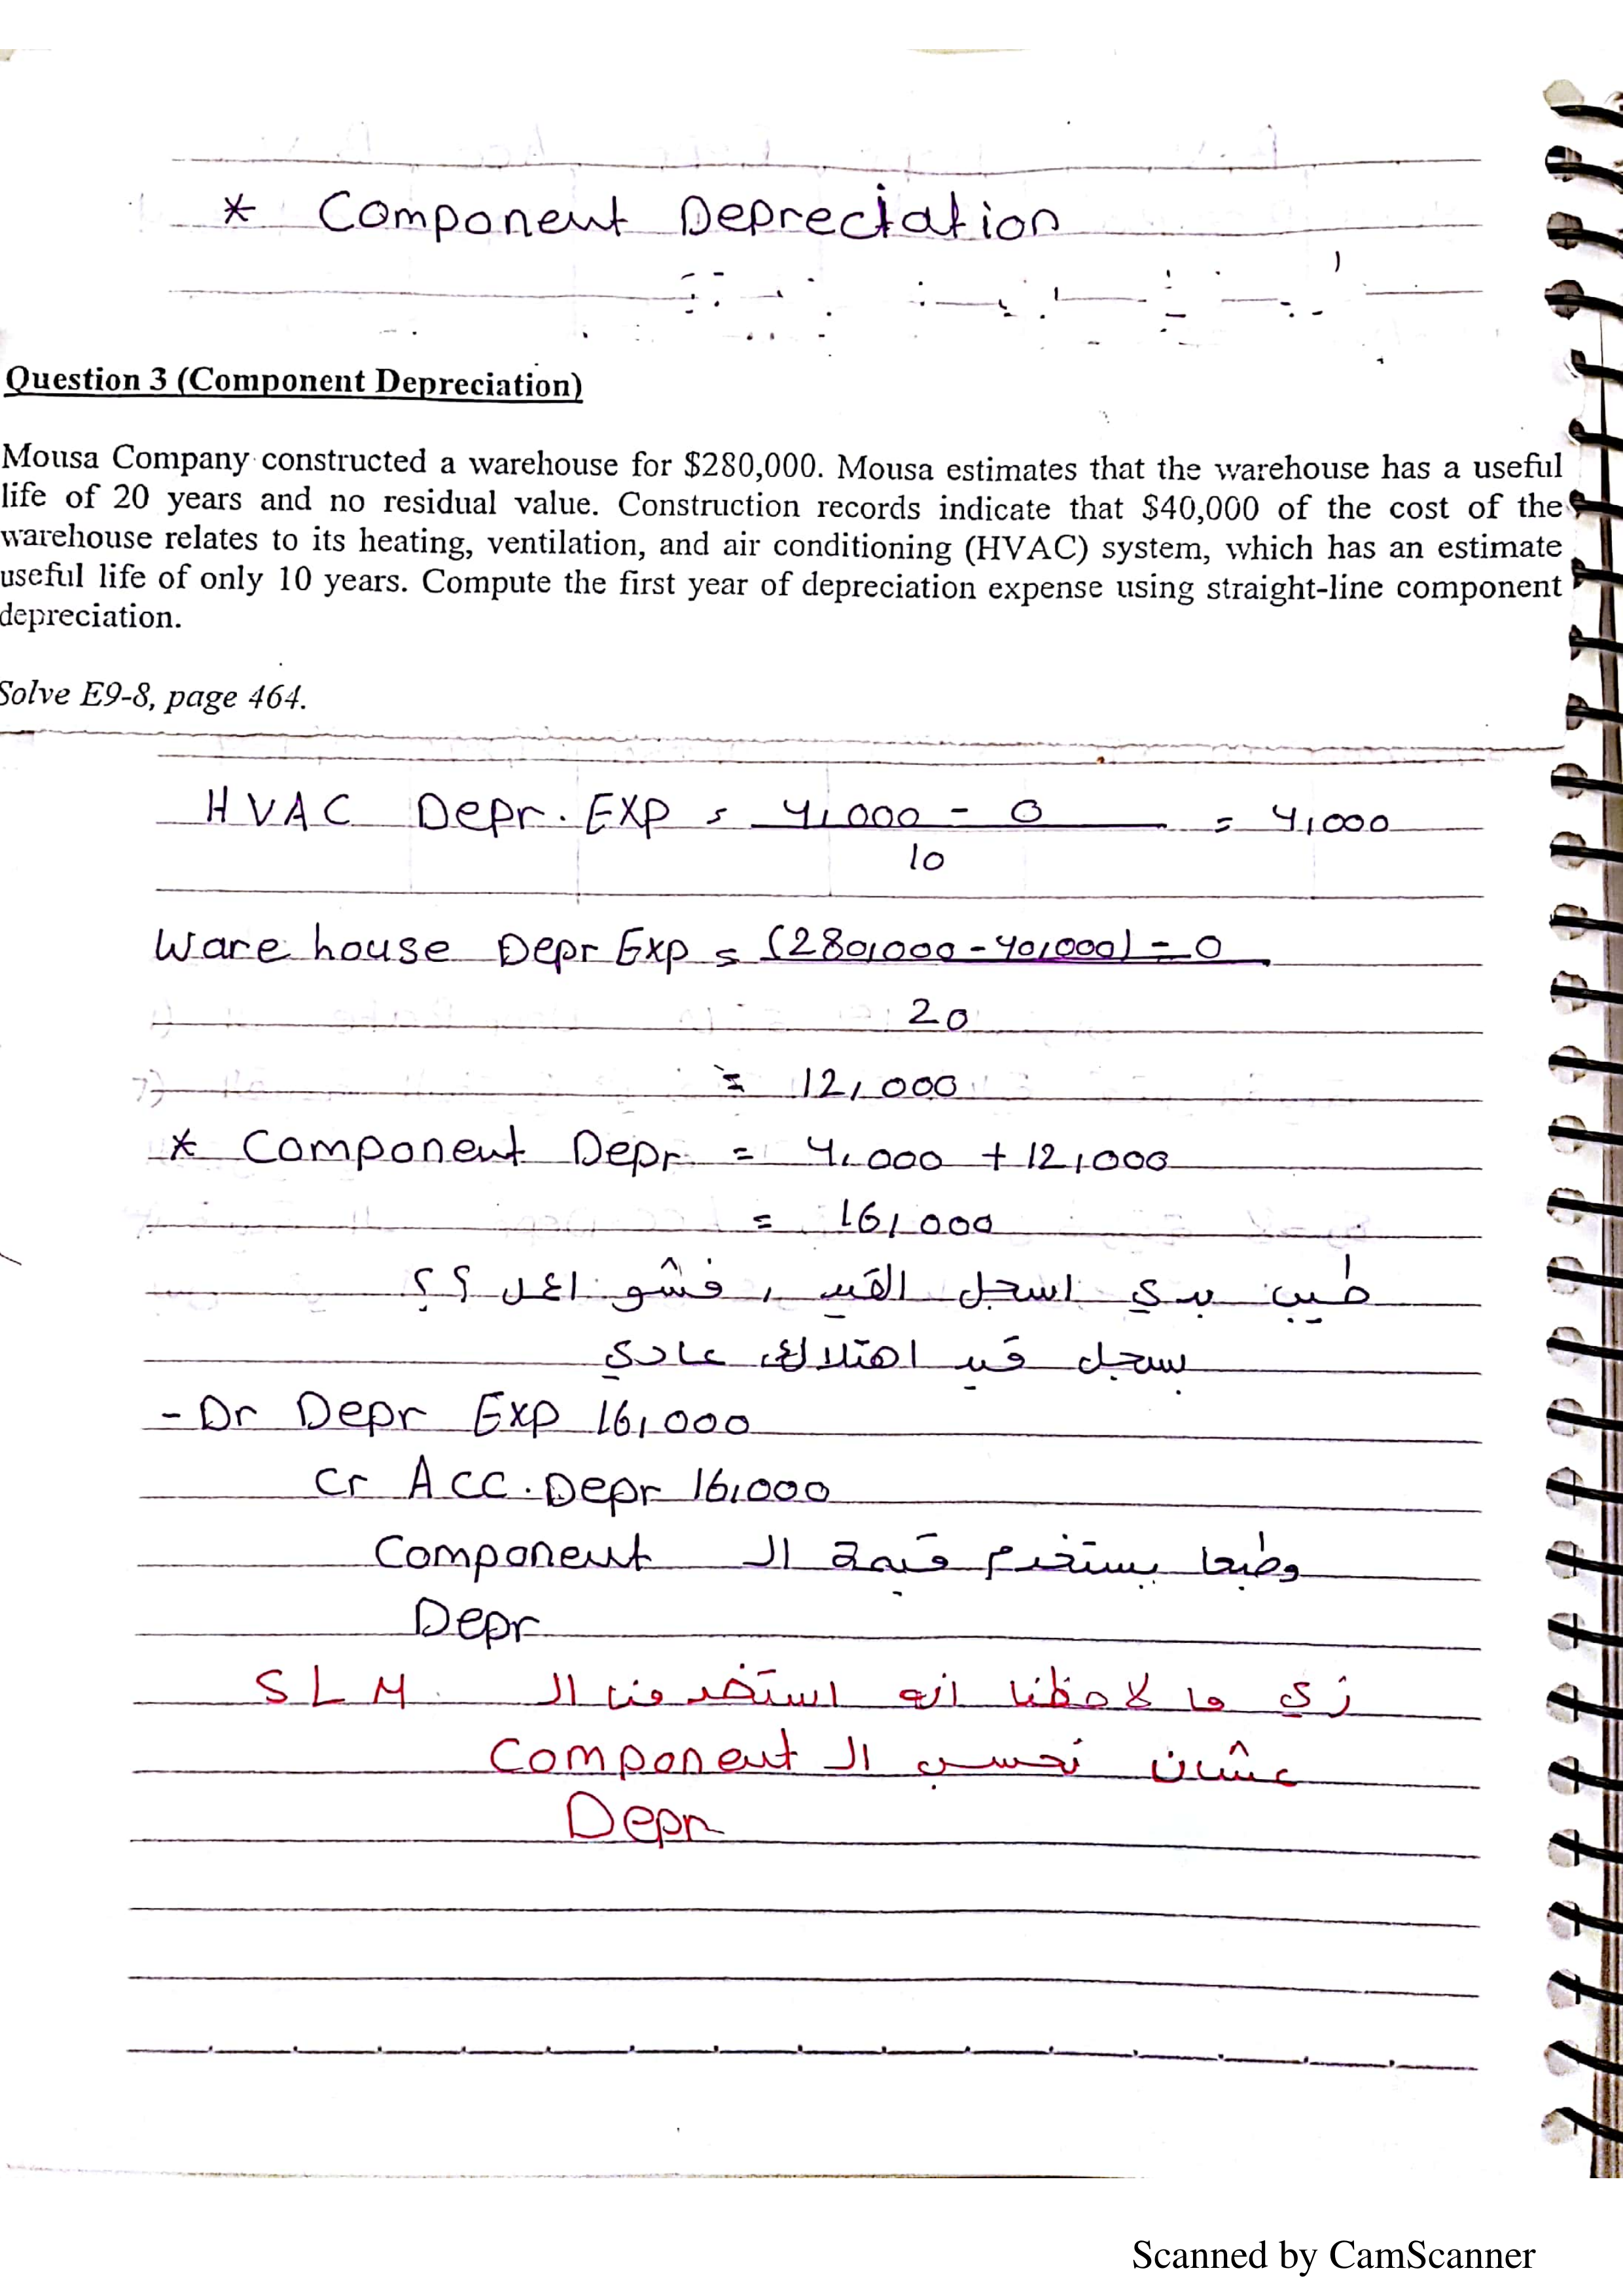 * Component Depreciation
Question 3 (Component Depreciation)
Mousa Company constructed a warehouse for $280,000. Mousa estimates that the warehouse has a useful
life of 20 years and no residual value. Construction records indicate that $40,000 of the cost of the
warehouse relates to its heating, ventilation, and air conditioning (HVAC) system, which has an estimate
useful life of only 10 years. Compute the first year of depreciation expense using straight-line component
depreciation.
Solve E9-8, page 464.
HVAC Depr. Exp = 4,000 - 0 = 4,000
10
Ware house Depr Exp = (280,000 - 40,000) - 0
20
= 12,000
* Component Depr = 4,000 + 12,000
= 16,000
طيب بدي اسجل القيد , فشو اعمل ؟؟
بسجل قيد اهتلاك عادي
- Dr Depr Exp 16,000
Cr Acc. Depr 16,000
وطبعا بستخدم قيمة ال Component
Depr
زي ما لاحظنا انه استخدمنا ال SLM
عشان نحسب ال Component
Depr
Scanned by CamScanner